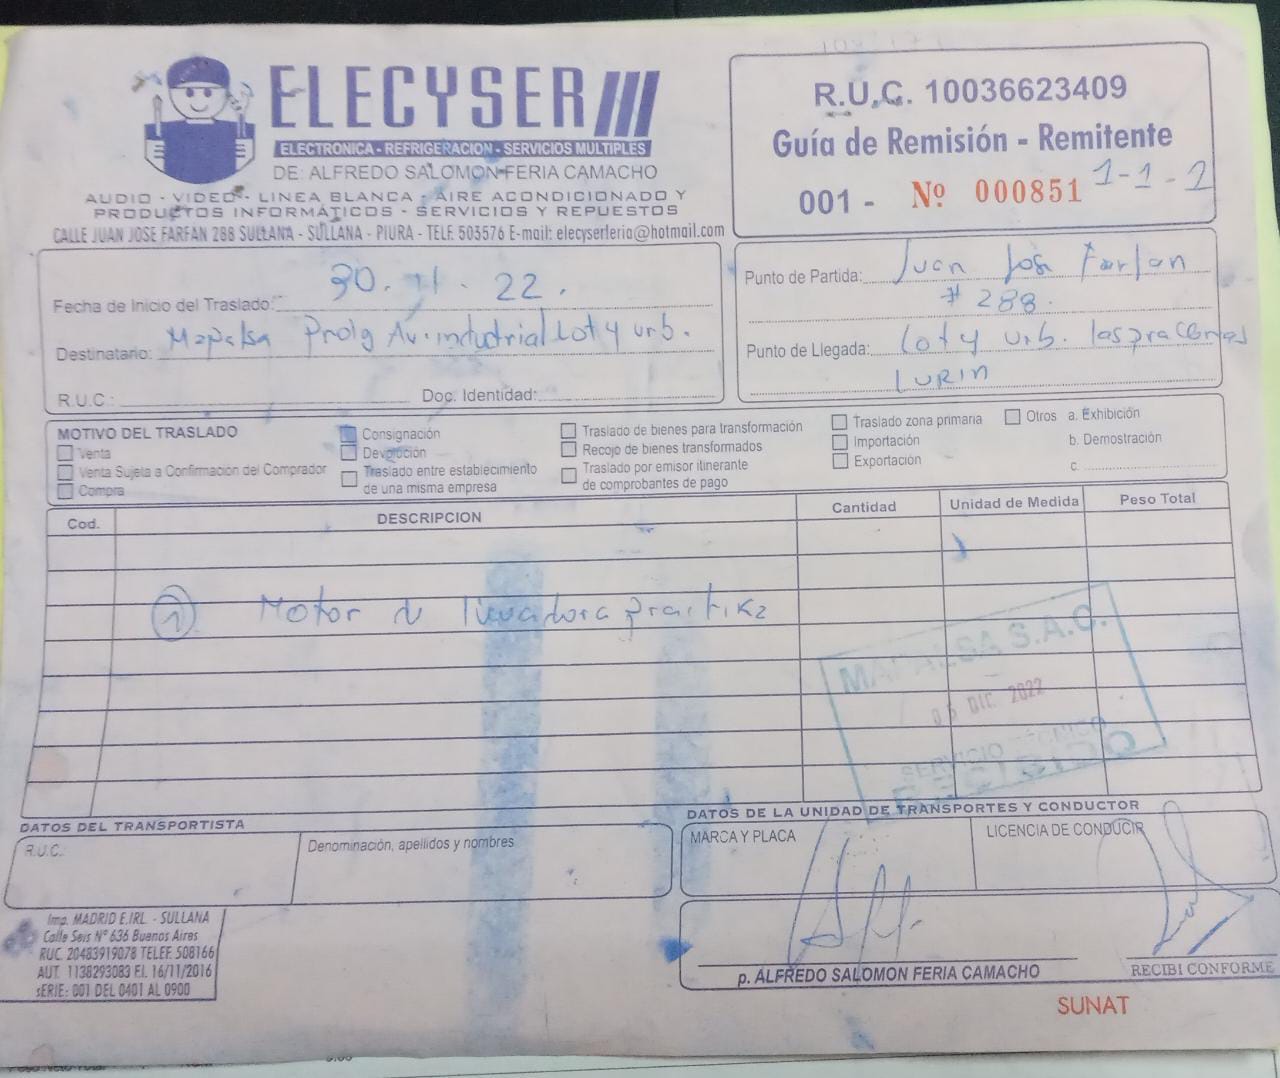 ELECYSER
ELECTRONICA - REFRIGERACION - SERVICIOS MULTIPLES
DE: ALFREDO SALOMON FERIA CAMACHO
AUDIO - VIDEO - LINEA BLANCA - AIRE ACONDICIONADO Y
PRODUCTOS INFORMÁTICOS - SERVICIOS Y REPUESTOS
CALLE JUAN JOSE FARFAN 288 SULLANA - SULLANA - PIURA - TELF. 503576 E-mail: elecyserferia@hotmail.com
R.U.C. 10036623409
Guía de Remisión - Remitente
001 - Nº 000851
1-1-2
Fecha de Inicio del Traslado: 30. 11. 22.
Destinatario: Mapalsa Prolg Av. industrial Lot y urb.
R.U.C.: Doc. Identidad:
Punto de Partida: Juan José Farfan
# 288.
Punto de Llegada: Lot y urb. las praderas
LURIN
MOTIVO DEL TRASLADO
Venta
Venta Sujeta a Confirmación del Comprador
Compra
Consignación
Devolución
Traslado entre establecimiento
de una misma empresa
Traslado de bienes para transformación
Recojo de bienes transformados
Traslado por emisor itinerante
de comprobantes de pago
Traslado zona primaria
Importación
Exportación
Otros a. Exhibición
b. Demostración
c.
Cod. DESCRIPCION Cantidad Unidad de Medida Peso Total
1 Motor de lavadora practika
MAPALSA S.A.C.
05 DIC. 2022
SERVICIO TÉCNICO
RECIBIDO
DATOS DEL TRANSPORTISTA
R.U.C.:
Denominación, apellidos y nombres
DATOS DE LA UNIDAD DE TRANSPORTES Y CONDUCTOR
MARCA Y PLACA
LICENCIA DE CONDUCIR
Imp. MADRID E.IRL. - SULLANA
Calle Seis Nº 636 Buenos Aires
RUC. 20483919078 TELEF. 508166
AUT. 1138293083 F.I. 16/11/2016
SERIE: 001 DEL 0401 AL 0900
p. ALFREDO SALOMON FERIA CAMACHO
RECIBI CONFORME
SUNAT